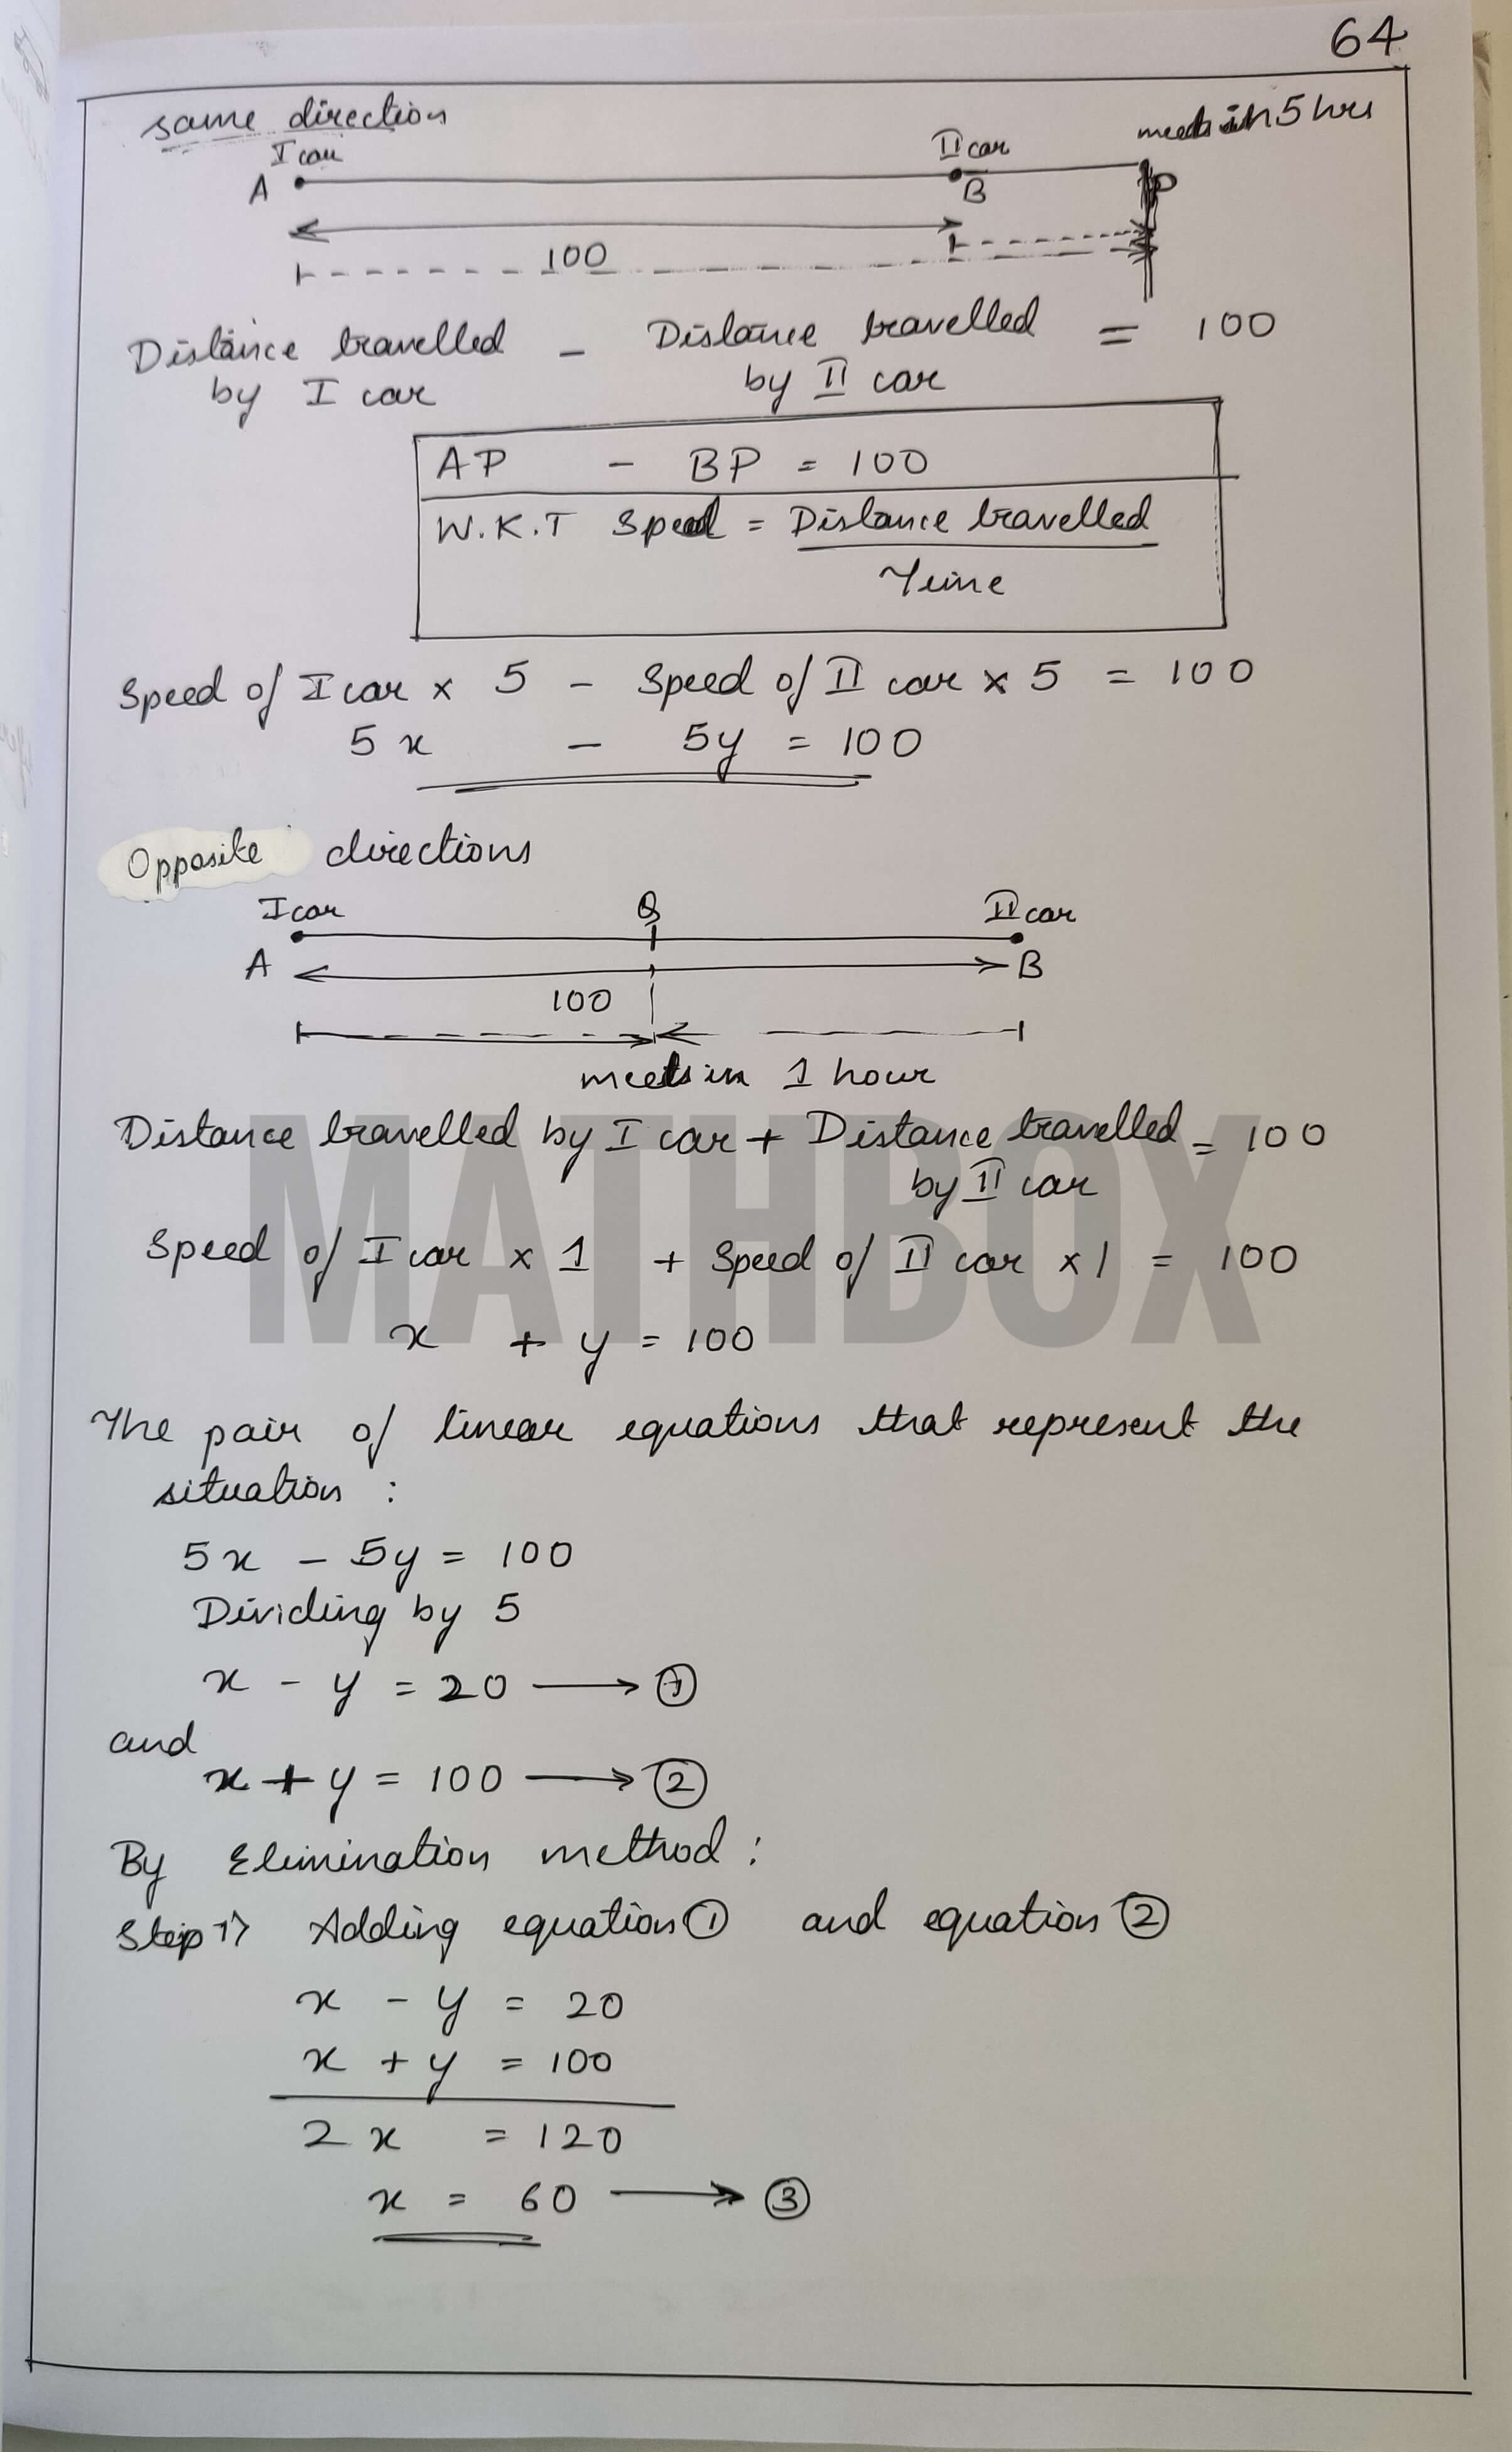 64
same direction
meets in 5 hrs
I car
II car
A
B
P
100
Distance travelled - Distance travelled = 100
by I car
by II car
AP - BP = 100
W.K.T Speed = Distance travelled
Time
Speed of I car x 5 - Speed of II car x 5 = 100
5x - 5y = 100
Opposite directions
I car
Q
II car
A
B
100
meets in 1 hour
Distance travelled by I car + Distance travelled = 100
by II car
Speed of I car x 1 + Speed of II car x 1 = 100
MATHBOX
x + y = 100
The pair of linear equations that represent the
situation :
5x - 5y = 100
Dividing by 5
x - y = 20 → ①
and
x + y = 100 → ②
By Elimination method :
Step 1> Adding equation ① and equation ②
x - y = 20
x + y = 100
2x = 120
x = 60 → ③